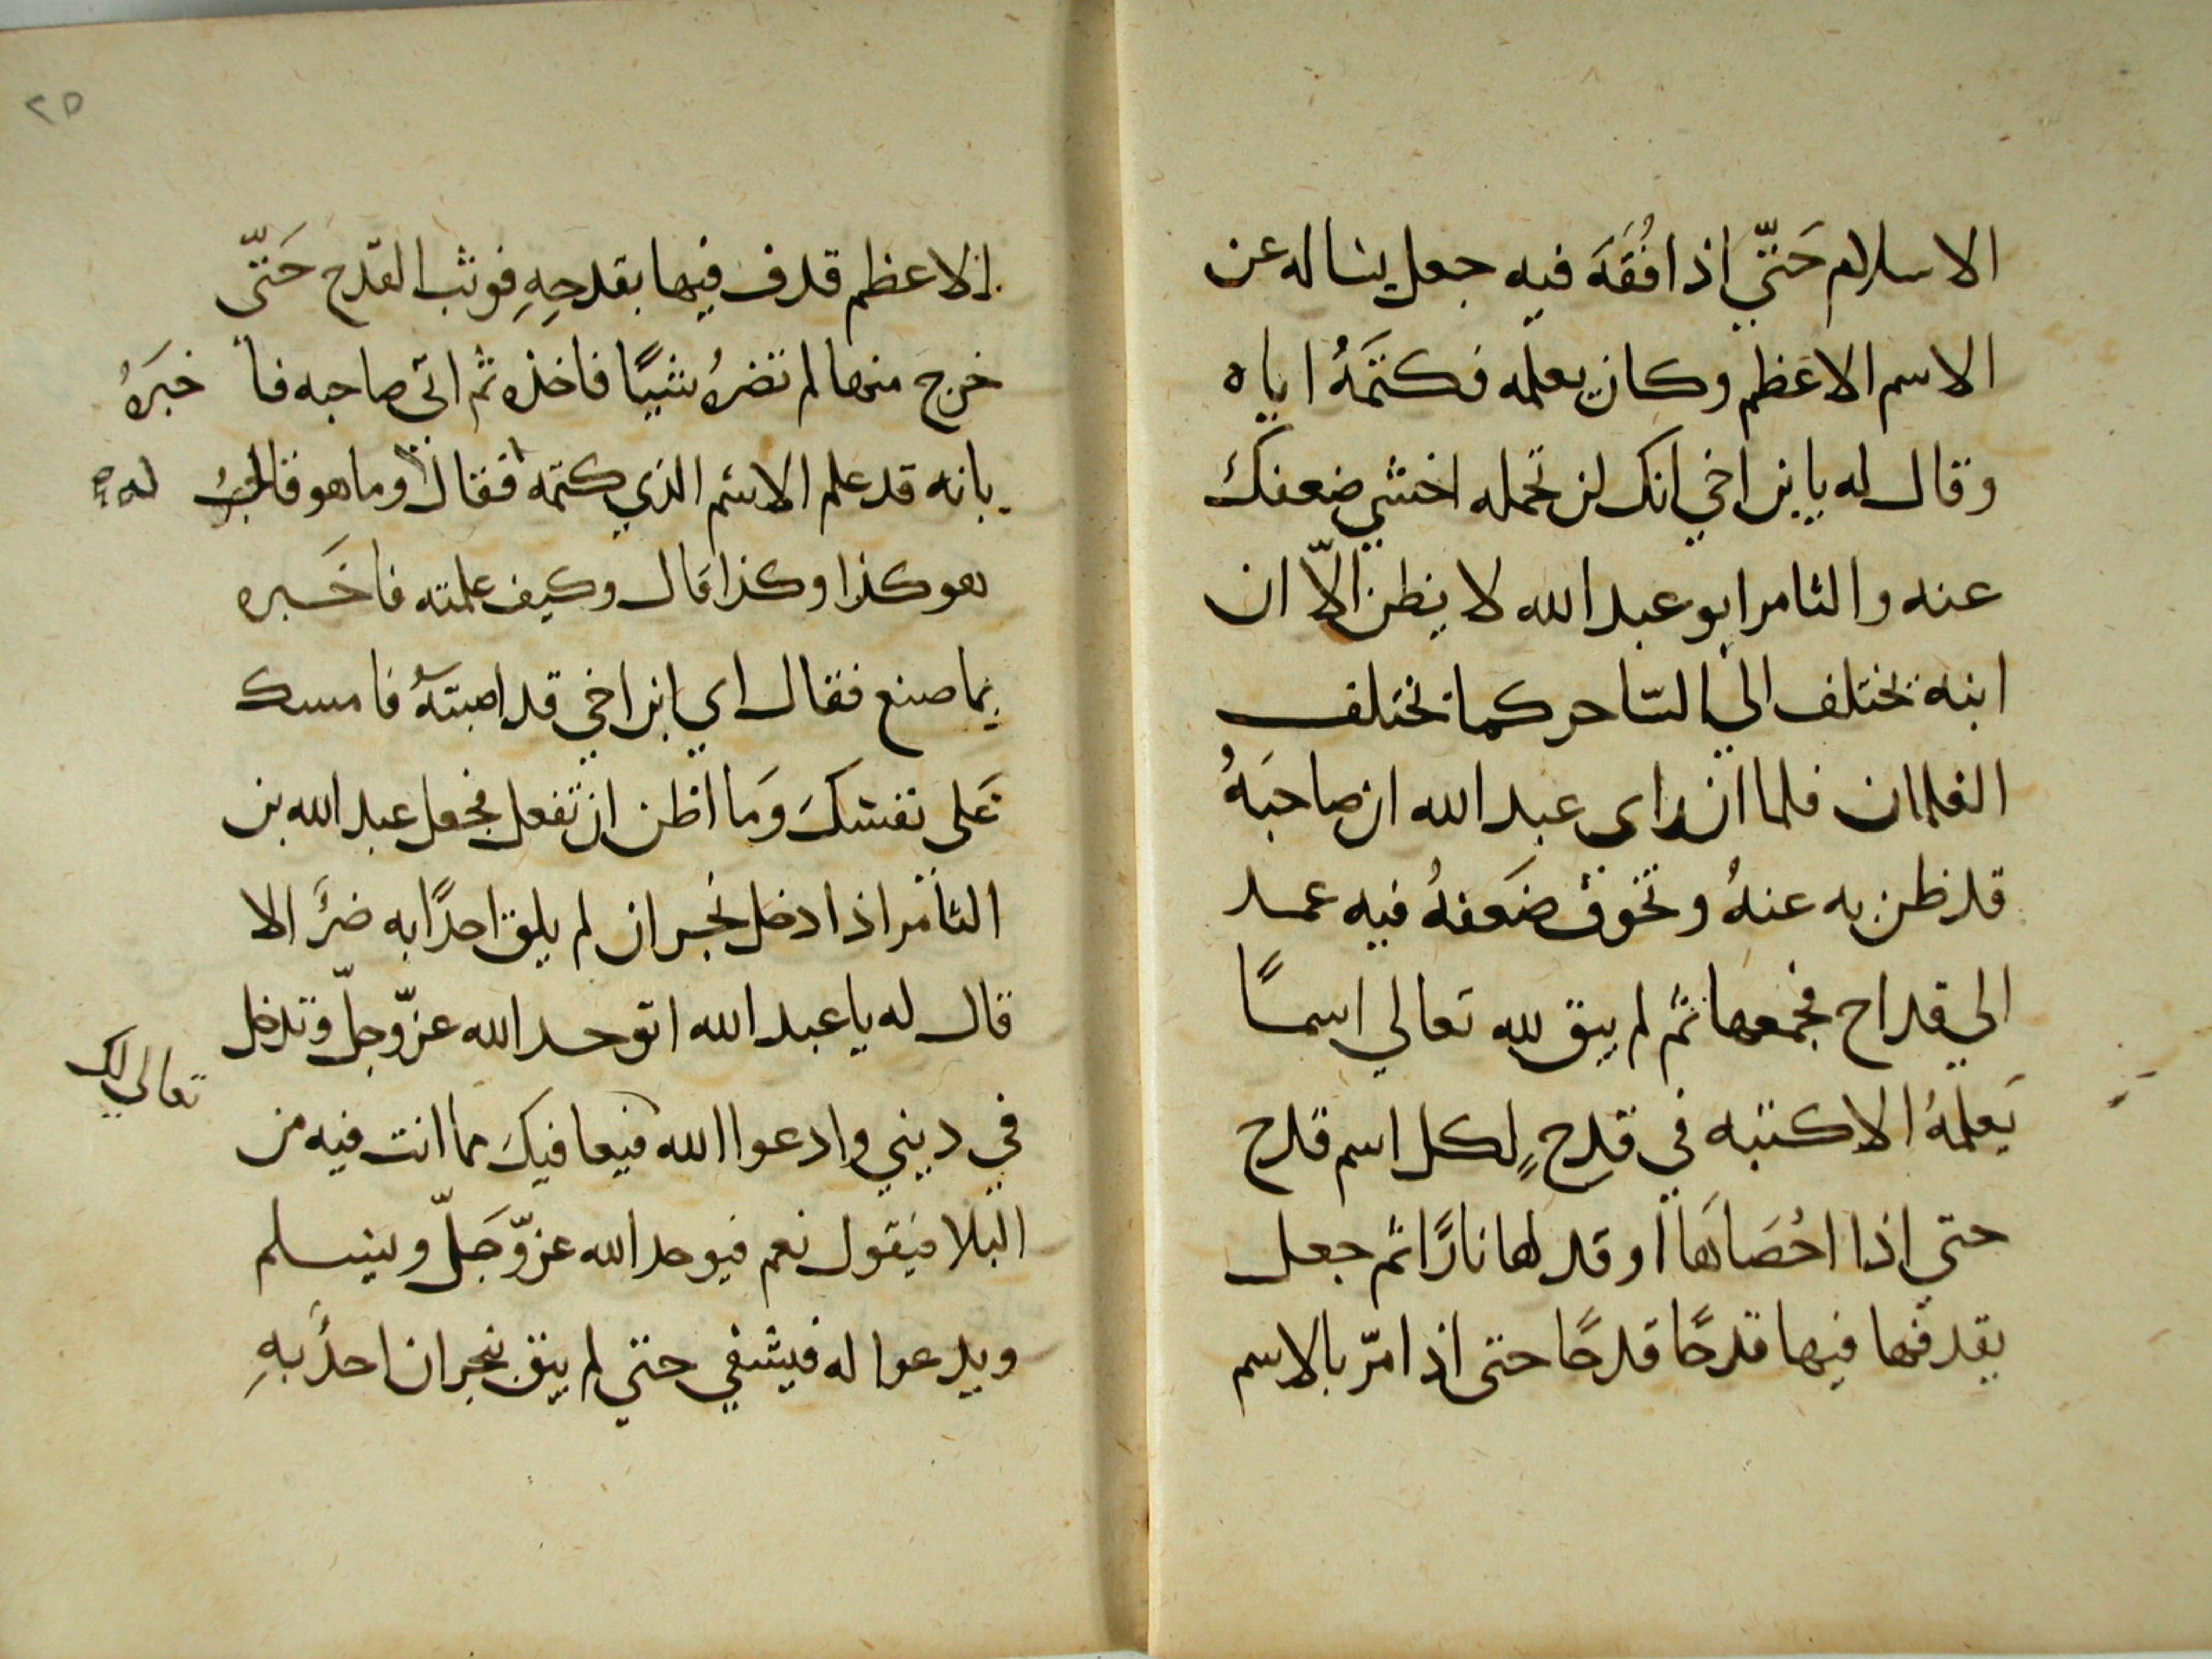 الاسلام حَتّي اذا فُقَهَ فيه جعل يساله عن
الاسم الاعظم وكان يعلمه فكتَمَهُ اياه
وقال له يا بن اخي انك لن تحمله اخشي ضعفك
عنه والثامر ابو عبد الله لا يظن الّا ان
ابنه يختلف الي السّاحر كما تختلف
الغلمان فلما ان راى عبد الله ان صاحبَهُ
قد ظن به عنهُ وتخوف ضَعفهُ فيه عمد
الي قداح فجمعها ثم لم يبق لله تعالي اسمًا
يَعلمهُ الا كتبه في قدحٍ لكل اسم قدح
حتي اذا احُصَاهَا اوقد لها نارًا ثم جعل
يقدفها فيها قدحًا قدحًا حتى اذا مرّ بالاسم
٢٥
الاعظم قدف فيها بقدحِهِ فوثب القدح حَتّى
خرج منها لم تضرهُ شيًا فاخذه ثم اتى صاحبه فا خبَرَهُ
بانه قد علم الاسم الذي كتمه فقال وما هو قال له
هو كذا وكذا قال وكيف علمته فاخَبره
بما صنع فقال اي ابن اخي قد اصبتهُ فامسك
عَلى نفسكَ وَما اظن ان تفعل فجعل عبد الله بن
الثامر اذا دخل نجران لم يلق احدًا به ضرّ الا
قال له يا عبد الله اتوحد الله عزّ وجلّ وتدخل
تعالى لك
في ديني وادعوا الله فيعافيكَ مما انت فيه من
البلا فيقول نعم فيوحد الله عزّ وَجَلّ ويسلم
ويدعوا له فيشفي حتي لم يبق بنجران احدٌ بهِ